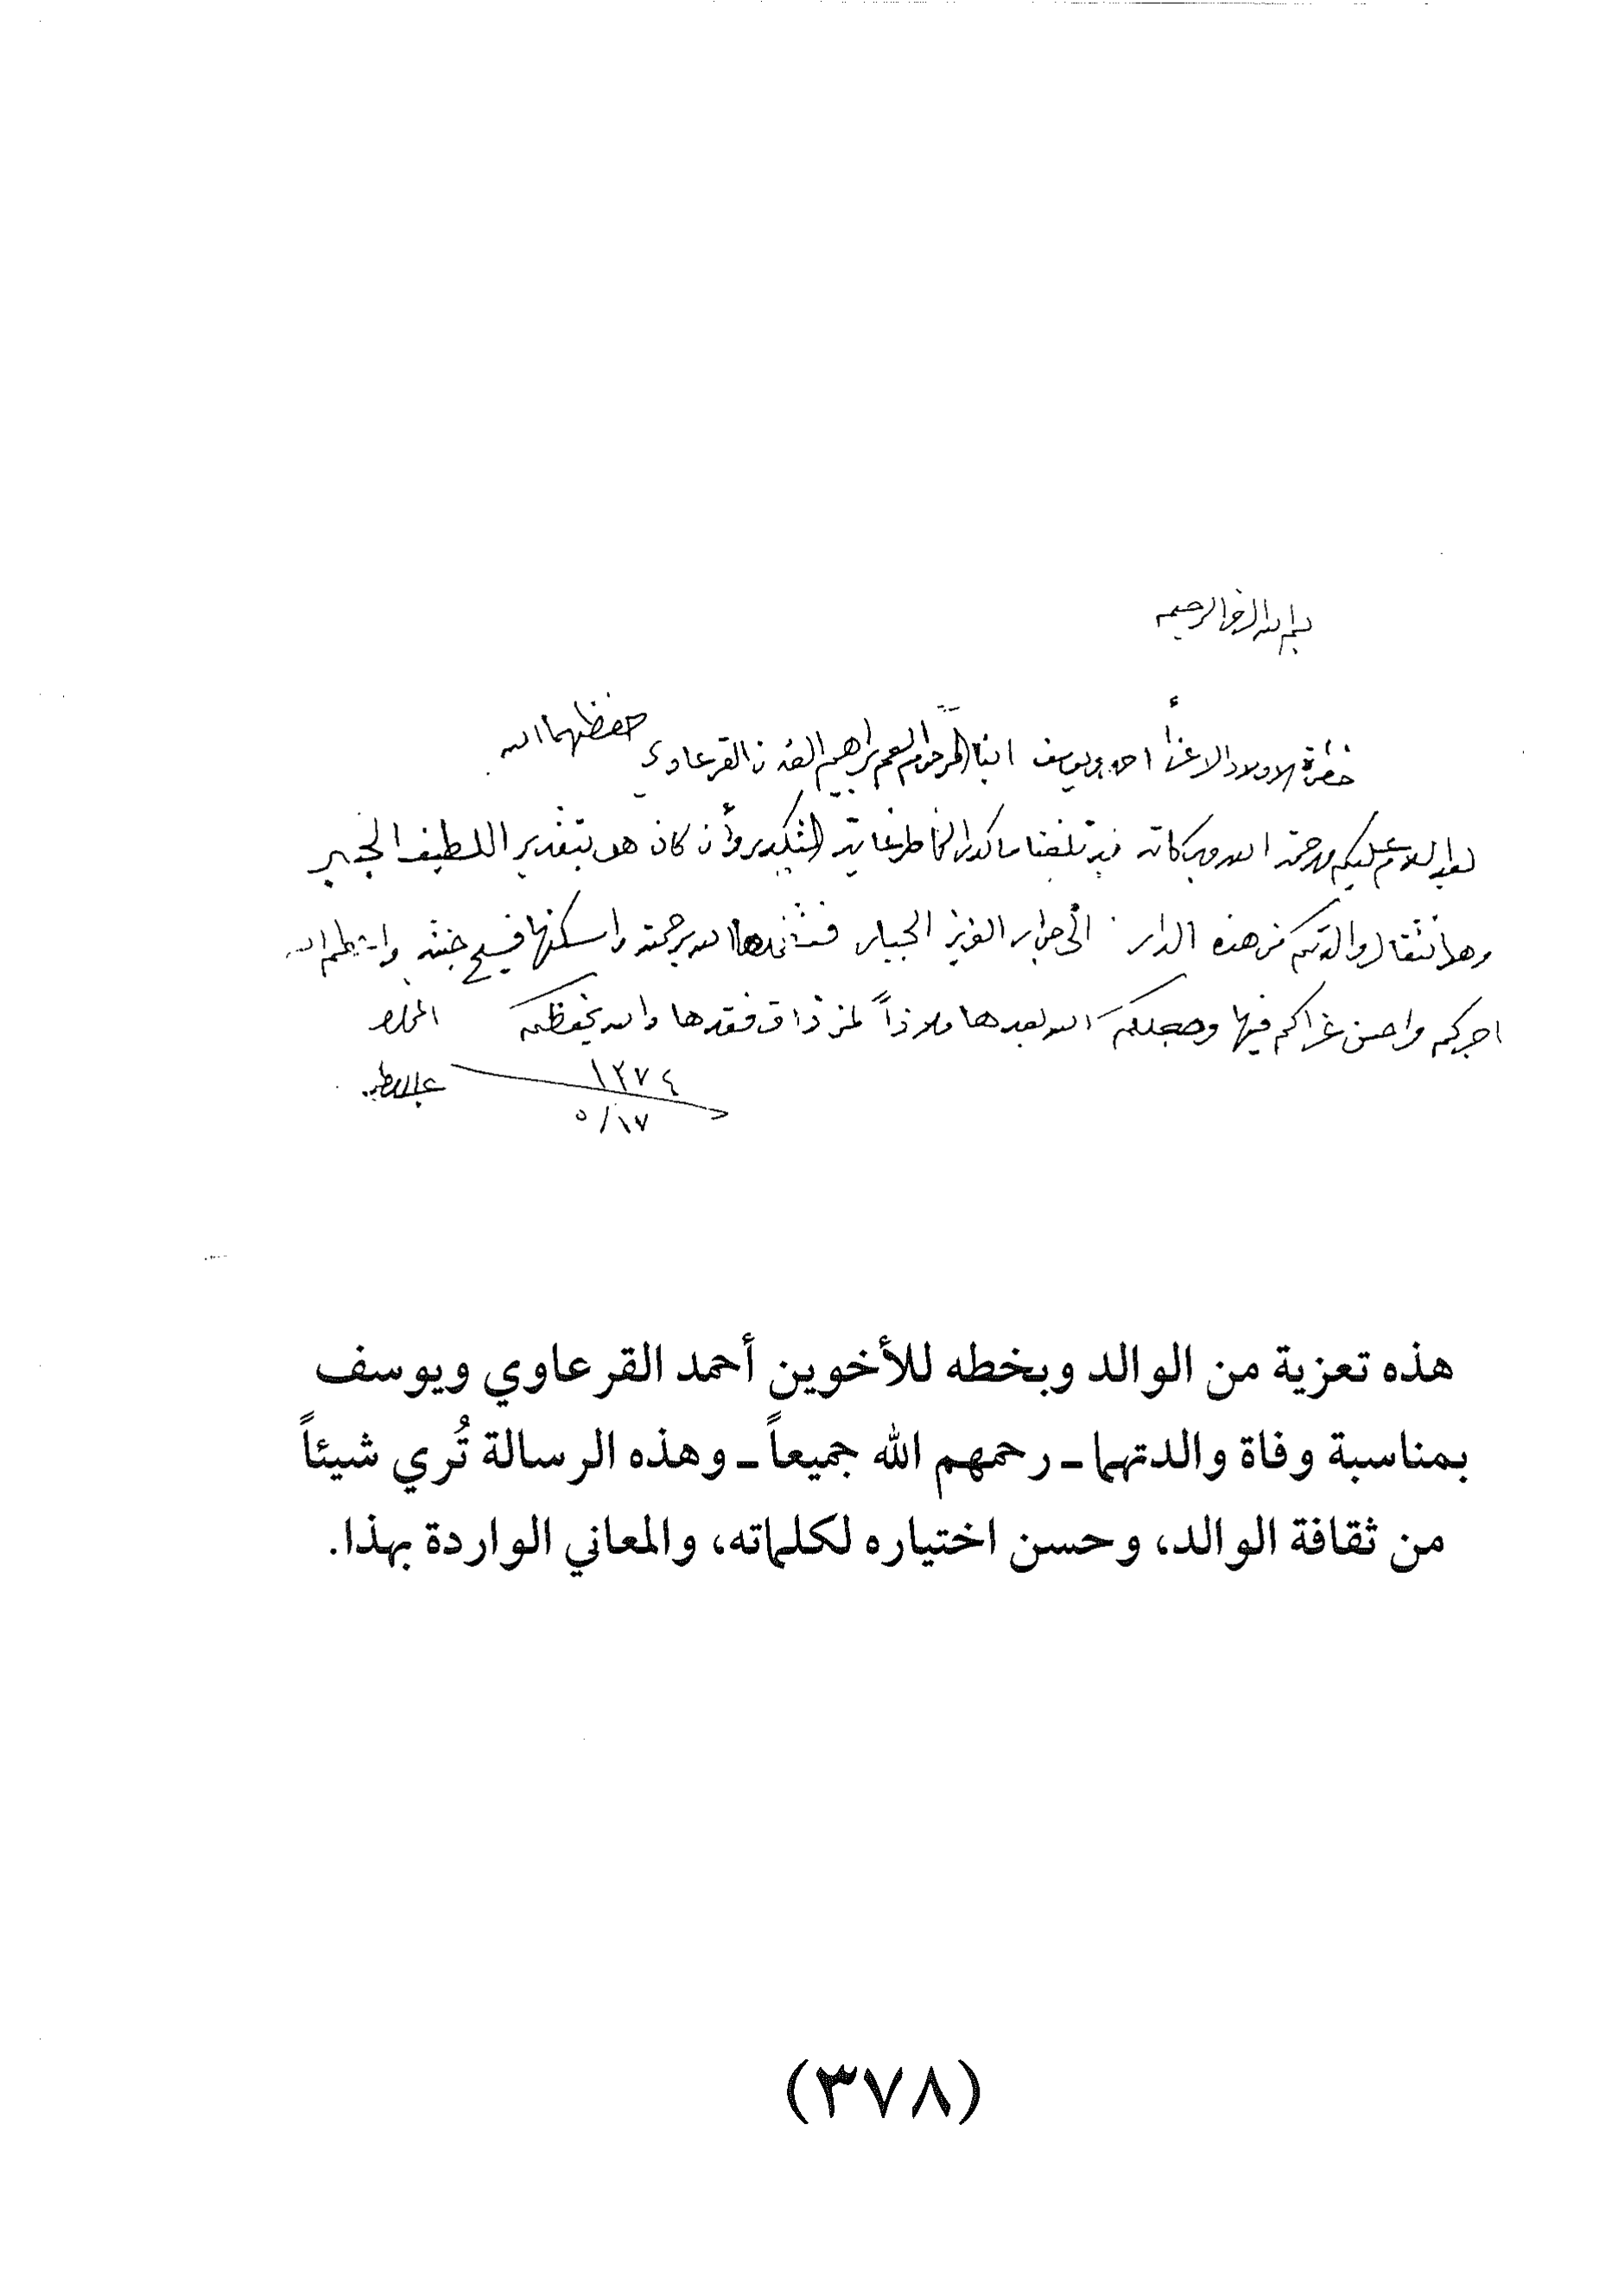 بسم الله الرحمن الرحيم
حضرة الاولاد الاعزاء احمد ويوسف ابناء المرحوم العم ابراهيم القرعاوي حفظهما الله
بعد السلام عليكم ورحمة الله وبركاته فقد بلغنا ما كدر الخاطر غاية التكدير وأن كان هو بتقدير اللطيف الخبير
وهو انتقال والدتكم من هذه الدار الى جوار العزيز الجبار فتغمدها الله برحمته واسكنها فسيح جنته واعظم الله
اجركم واحسن عزاكم فيها وجعلكم الله بعدها ملاذاً لمن ذاق فقدها والله يحفظكم المخلص
١٣٧٤
٥/١٧
هذه تعزية من الوالد وبخطه للأخوين أحمد القرعاوي ويوسف
بمناسبة وفاة والدتهما ـ رحمهم الله جميعاً ـ وهذه الرسالة تُري شيئاً
من ثقافة الوالد، وحسن اختياره لكلماته، والمعاني الواردة بهذا.
(٣٧٨)